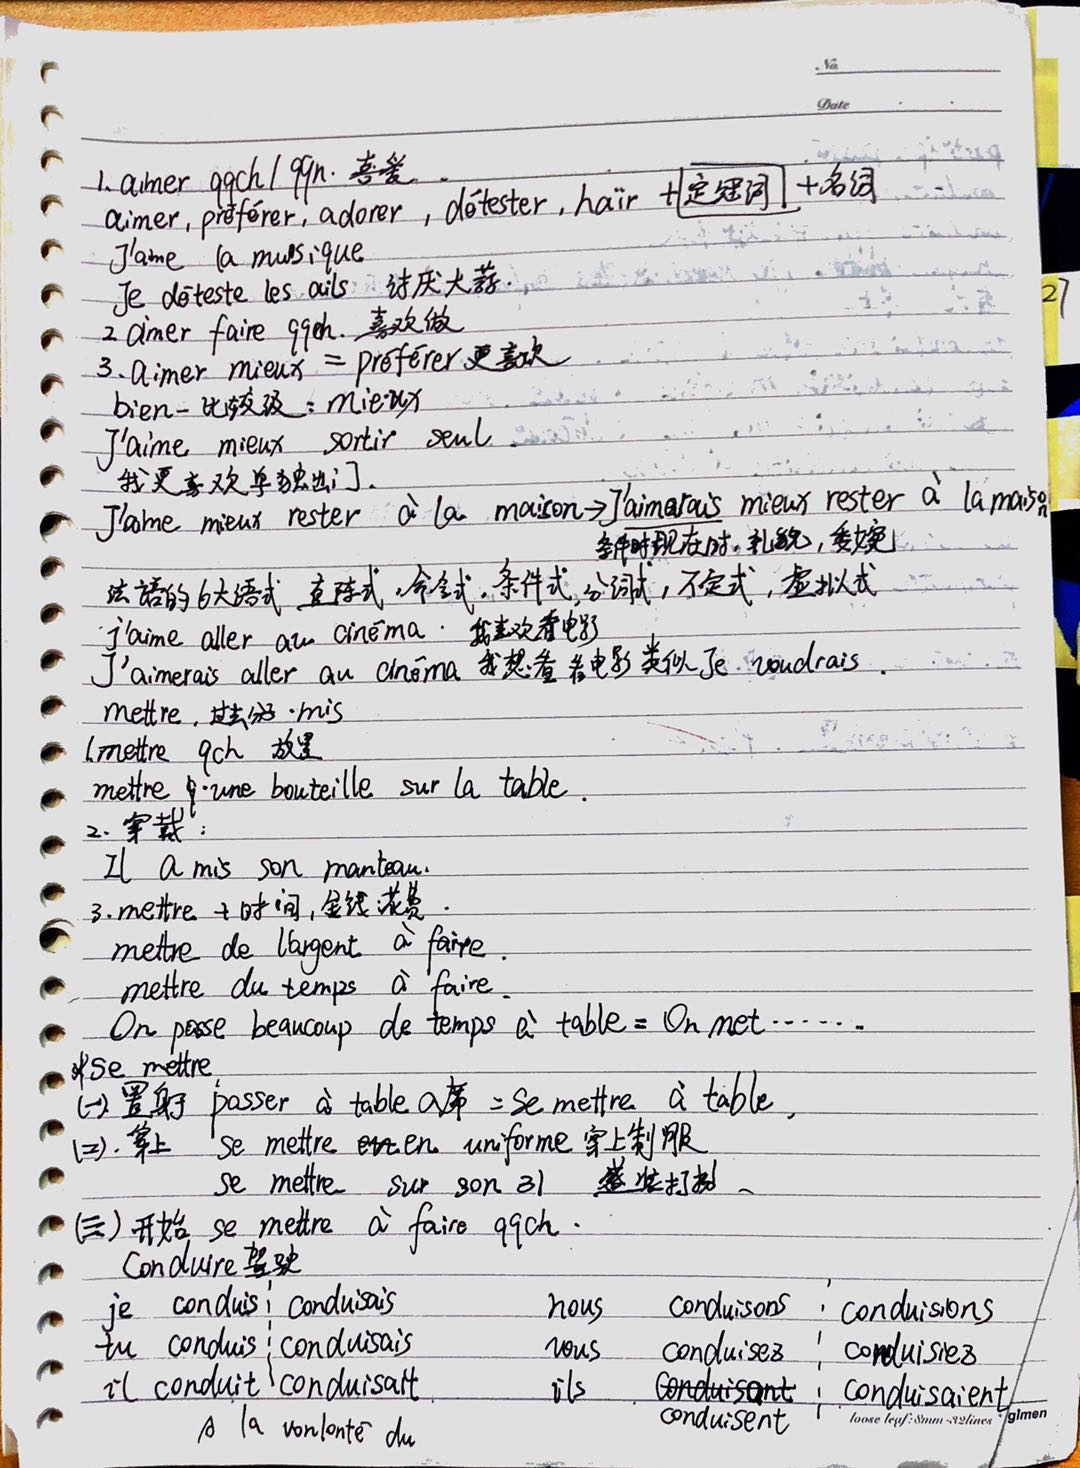 No
Date
1. aimer qqch / qqn. 喜爱
aimer, préférer, adorer, détester, haïr + 定冠词 + 名词
J'aime la musique
Je déteste les ails 讨厌大蒜.
2 aimer faire qqch. 喜欢做
3. aimer mieux = préférer 更喜欢
bien - 比较级: mieux
J'aime mieux sortir seul.
我更喜欢单独出门.
J'aime mieux rester à la maison → J'aimerais mieux rester à la maison
条件时现在时. 礼貌, 委婉
法語的6大语式 直陈式, 命令式, 条件式, 分词式, 不定式, 虚拟式
j'aime aller au cinéma. 我喜欢看电影
J'aimerais aller au cinéma 我想看看电影 类似 Je voudrais.
mettre, 过去分 . mis
1. mettre qch 放置
mettre une bouteille sur la table.
2. 穿戴:
Il a mis son manteau.
3. mettre + 时间, 金钱 花费.
mettre de l'argent à faire.
mettre du temps à faire.
On passe beaucoup de temps à table = On met ......
* Se mettre
(一) 置身于 passer à table 入席 = Se mettre à table,
(二). 穿上 se mettre en uniforme 穿上制服
se mettre sur son 31 盛装打扮、
(三) 开始 se mettre à faire qqch.
Conduire 驾驶
je conduis conduisais nous conduisons conduisions
tu conduis conduisais vous conduisez conduisiez
il conduit conduisait ils conduisant conduisaient
conduisent
loose leaf: 8mm · 32lines glmen
A la vonlonté du